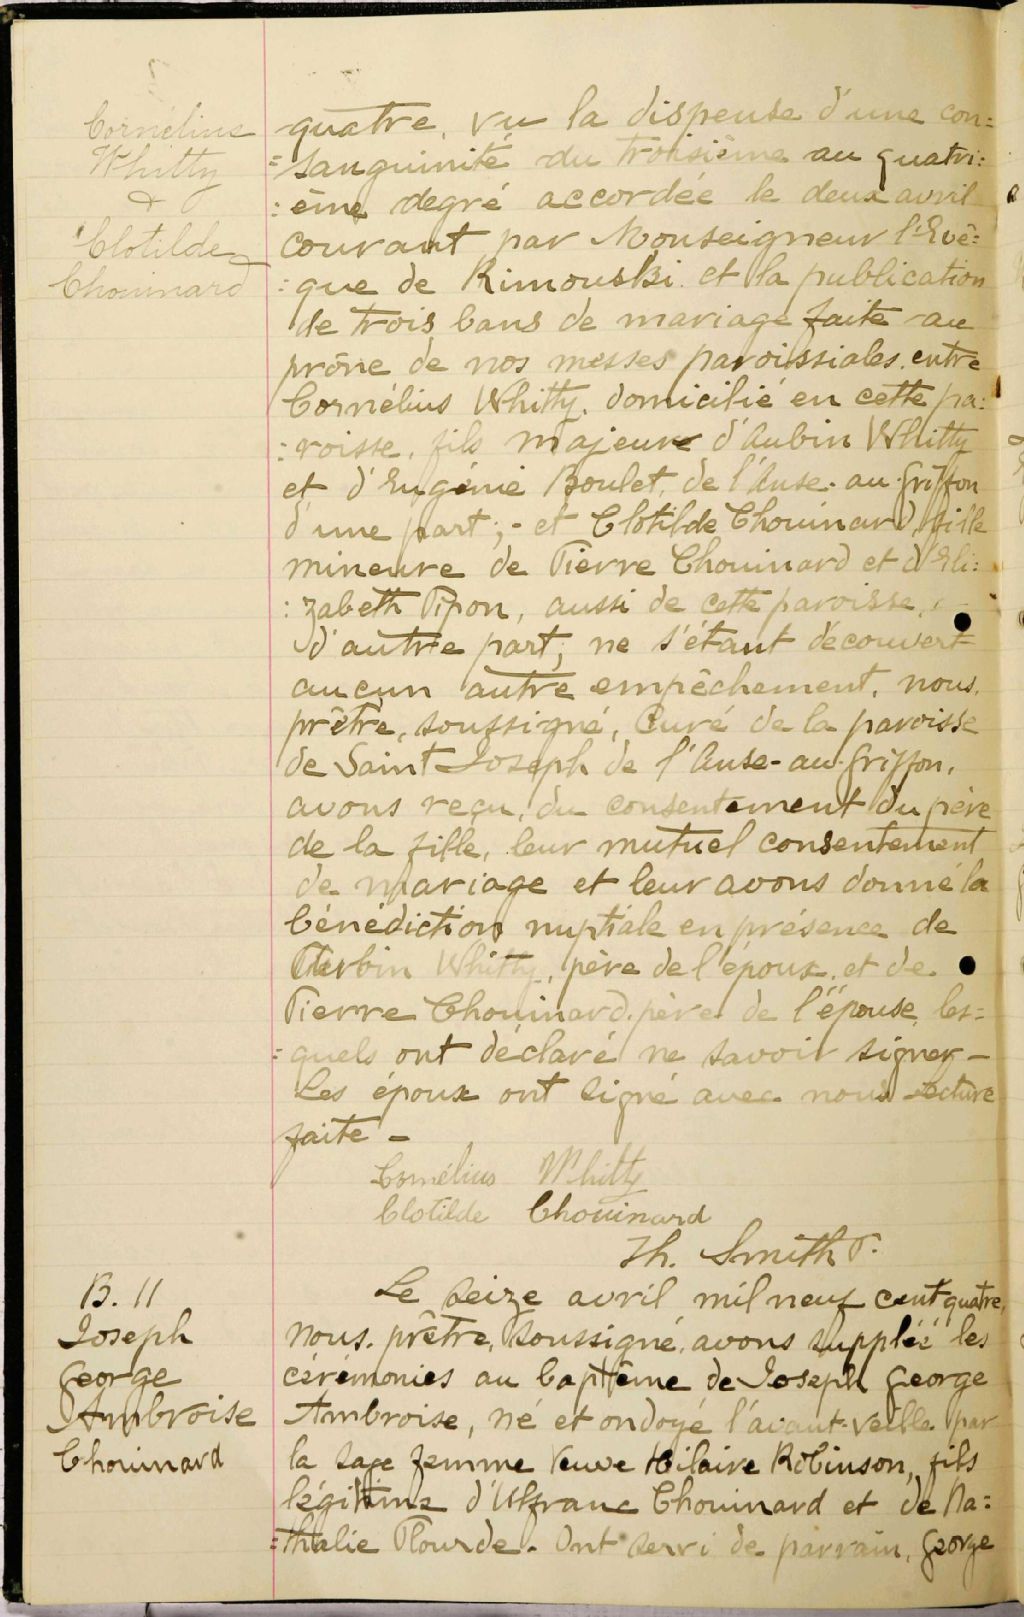 Cornélius
Whitty
&
Clotilde
Chouinard
quatre, vu la dispense d'une con=
=sanguinité du troisième au quatri:
:ème degré accordée le deux avril
courant par Monseigneur l'Evê=
:que de Rimouski et la publication
de trois bans de mariage faite au
prône de nos messes paroissiales entre
Cornélius Whitty, domicilié en cette pa:
:roisse, fils majeur d'Aubin Whitty
et d'Eugénie Boulet, de l'Anse-au-Griffon
d'une part; - et Clotilde Chouinard, fille
mineure de Pierre Chouinard et d'Eli:
:zabeth Pipon, aussi de cette paroisse,
d'autre part; ne s'étant découvert
aucun autre empêchement, nous,
prêtre, soussigné, Curé de la paroisse
de Saint Joseph de l'Anse-au-Griffon,
avons reçu, du consentement du père
de la fille, leur mutuel consentement
de mariage et leur avons donné la
bénédiction nuptiale en présence de
Aubin Whitty, père de l'époux, et de
Pierre Chouinard, père de l'épouse, les=
=quels ont déclaré ne savoir signer -
Les époux ont signé avec nous - Lecture
faite -
Cornélius Whitty
Clotilde Chouinard
Th. Smith P.
B. 11
Joseph
George
Ambroise
Chouinard
Le seize avril mil neuf cent quatre,
nous, prêtre, soussigné, avons suppléé les
cérémonies au baptême de Joseph George
Ambroise, né et ondoyé l'avant-veille par
la sage femme Veuve Hilaire Robinson, fils
légitime d'Ulfranc Chouinard et de Na=
=thalie Plourde. Ont servi de parrain, George